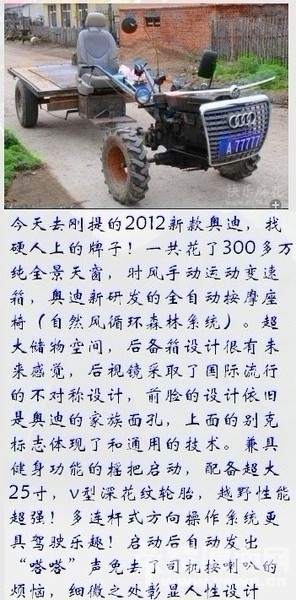 A 77777
今天去刚提的2012新款奥迪，找
硬人上的牌子！一共花了300多万
纯全景天窗，时风手动运动变速
箱，奥迪新研发的全自动按摩座
椅（自然风循环森林系统）。超
大储物空间，后备箱设计很有未
来感觉，后视镜采取了国际流行
的不对称设计，前脸的设计依旧
是奥迪的家族面孔，上面的别克
标志体现了和通用的技术。兼具
健身功能的摇把启动，配备超大
25寸，v型深花纹轮胎，越野性能
超强！多连杆式方向操作系统更
具驾驶乐趣！启动后自动发出
“嗒嗒”声免去了司机按喇叭的
烦恼，细微之处彰显人性设计